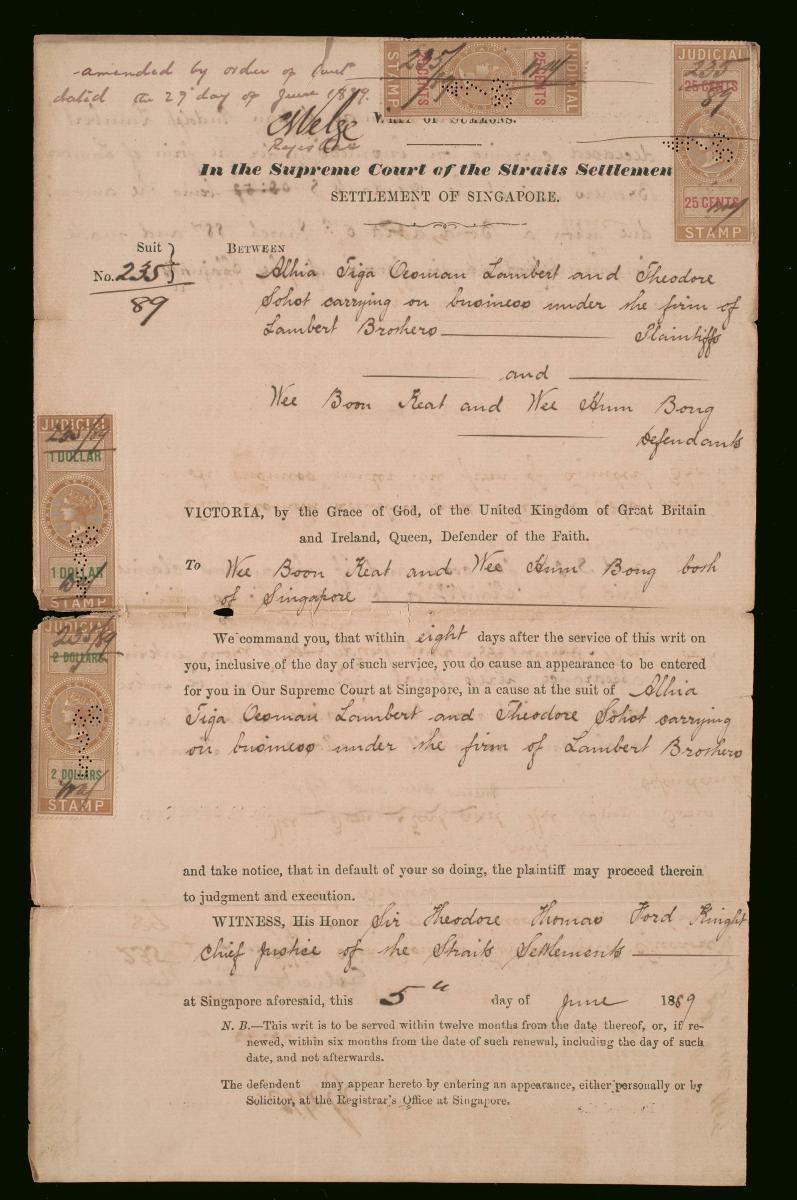 amended by order of Court
dated the 27 day of June 1889.
Registrar
JUDICIAL
235/89
25 CENTS
25 CENTS
STAMP
JUDICIAL
235
25 CENTS
89
25 CENTS
STAMP
WRIT OF SUMMONS.
In the Supreme Court of the Straits Settlemen
SETTLEMENT OF SINGAPORE.
Suit
No. 235
89
BETWEEN
Alhia Tiga Oesman Lambert and Theodore
Sohst carrying on business under the firm of
Lambert Brothers Plaintiffs
and
Wee Boon Keat and Wee Hum Bong
Defendants
JUDICIAL
235/89
1 DOLLAR
1 DOLLAR
STAMP
VICTORIA, by the Grace of God, of the United Kingdom of Great Britain
and Ireland, Queen, Defender of the Faith.
To Wee Boon Keat and Wee Hum Bong both
of Singapore
JUDICIAL
235/89
2 DOLLARS
2 DOLLARS
STAMP
We command you, that within eight days after the service of this writ on
you, inclusive of the day of such service, you do cause an appearance to be entered
for you in Our Supreme Court at Singapore, in a cause at the suit of Alhia
Tiga Oesman Lambert and Theodore Sohst carrying
on business under the firm of Lambert Brothers
and take notice, that in default of your so doing, the plaintiff may proceed therein
to judgment and execution.
WITNESS, His Honor Sir Theodore Thomas Ford Knight
Chief Justice of the Straits Settlements
at Singapore aforesaid, this 5th day of June 1889
N. B.—This writ is to be served within twelve months from the date thereof, or, if re-
newed, within six months from the date of such renewal, including the day of such
date, and not afterwards.
The defendant may appear hereto by entering an appearance, either personally or by
Solicitor, at the Registrar's Office at Singapore.